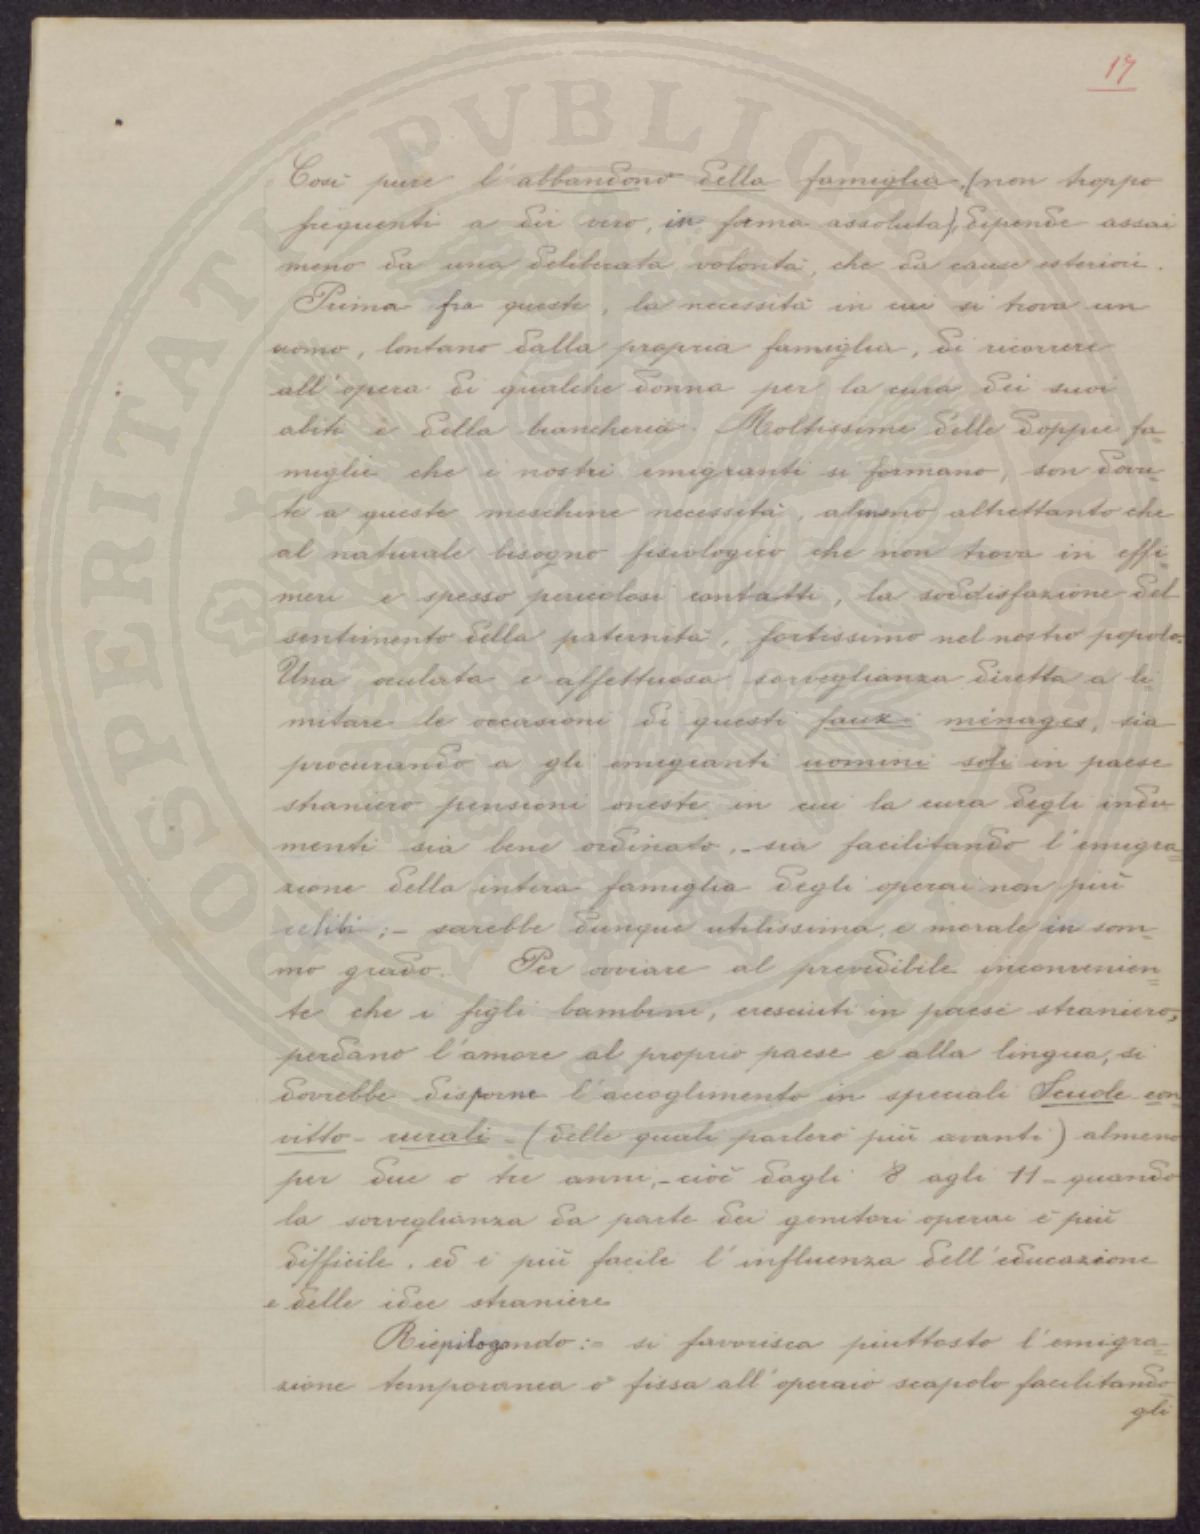 17
Così pure l'abbandono della famiglia, (non troppo
frequenti a dir vero, in forma assoluta), dipende assai
meno da una deliberata volontà, che da cause esteriori.
Prima fra queste, la necessità in cui si trova un
uomo, lontano dalla propria famiglia, di ricorrere
all'opera di qualche donna per la cura dei suoi
abiti e della biancheria. Moltissime delle doppie fa=
miglie che i nostri emigranti si formano, son dovu=
te a queste meschine necessità, almeno altrettanto che
al naturale bisogno fisiologico che non trova in effi=
meri e spesso pericolosi contatti, la soddisfazione del
sentimento della paternità, fortissimo nel nostro popolo.
Una oculata e affettuosa sorveglianza diretta a li=
mitare le occasioni di questi faux ménages, sia
procurando a gli emigranti uomini soli in paese
straniero pensioni oneste in cui la cura degli indu
menti sia bene ordinato, - sia facilitando l'emigra=
zione della intera famiglia degli operai non più
celibi ;- sarebbe dunque utilissima, e morale in som=
mo grado. Per ovviare al prevedibile inconvenien=
te che i figli bambini, cresciuti in paese straniero,
perdano l'amore al proprio paese e alla lingua, si
dovrebbe disporne l'accoglimento in speciali Scuole con
vitto - rurali - (delle quali parlerò più avanti) almeno
per due o tre anni, - cioè dagli 8 agli 11 - quando
la sorveglianza da parte dei genitori operai è più
difficile, ed è più facile l'influenza dell'educazione
e delle idee straniere
Riepilogando :- si favorisca piuttosto l'emigra=
zione temporanea o fissa all'operaio scapolo facilitando
gli
PROSPERITATI PVBLICAE